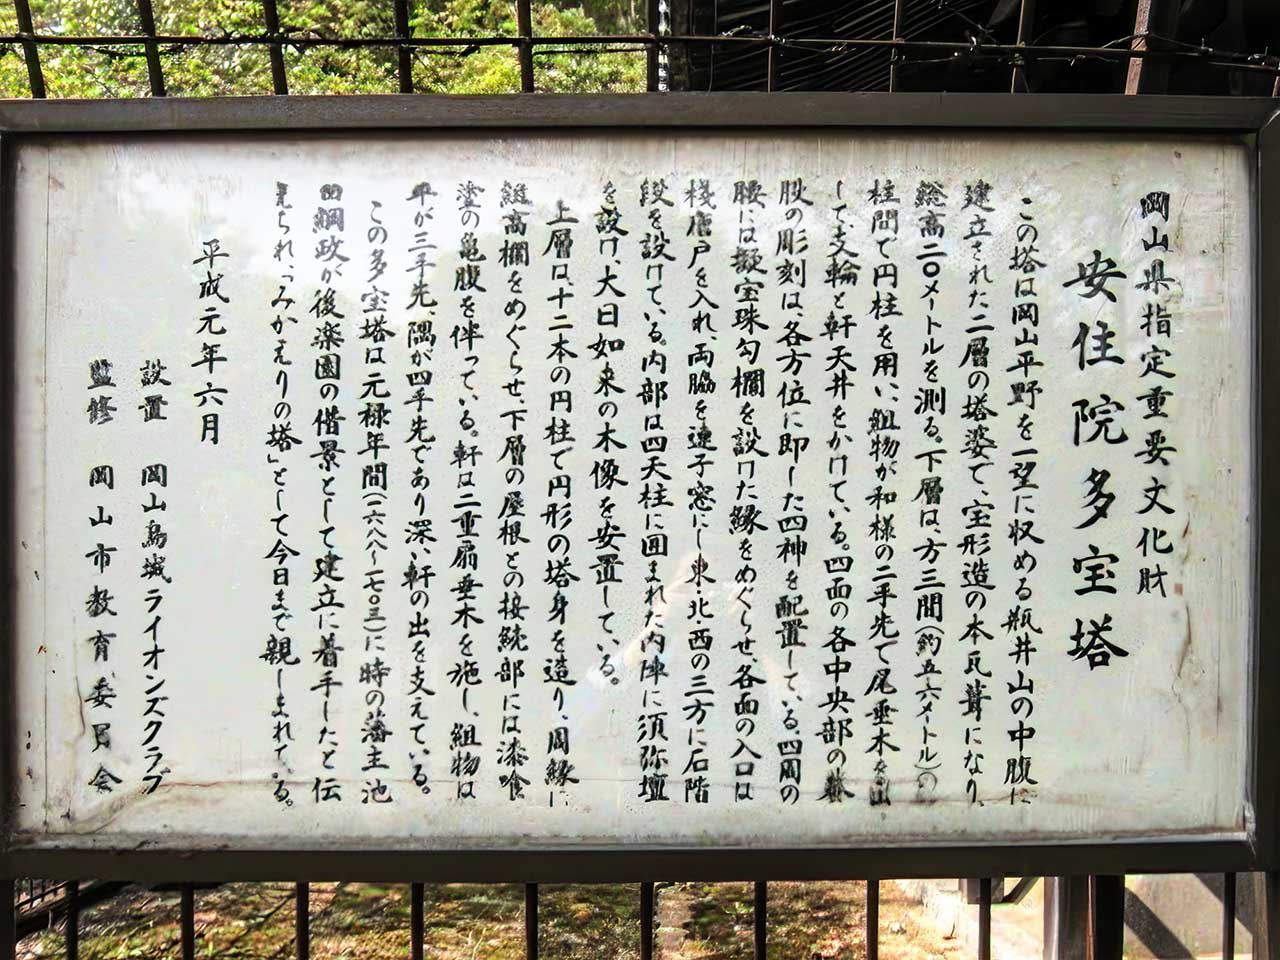 岡山県指定重要文化財
安住院多宝塔
この塔は岡山平野を一望に収める瓶井山の中腹に
建立された二層の塔婆で、宝形造の本瓦葺になり、
総高二〇メートルを測る。下層は、方三間(約五・六メートル)の
柱間で円柱を用い、組物が和様の二手先で尾垂木を出
して、支輪と軒天井をかけている。四面の各中央部の蟇
股の彫刻は、各方位に即した四神を配置している。四周の
腰には擬宝珠勾欄を設けた縁をめぐらせ各面の入口は
棧唐戸を入れ、両脇を連子窓にし東・北・西の三方に石階
段を設けている。内部は四天柱に囲まれた内陣に須弥壇
を設け、大日如来の木像を安置している。
上層は、十二本の円柱で円形の塔身を造り、周縁に
組高欄をめぐらせ、下層の屋根との接続部には漆喰
塗の亀腹を伴っている。軒は二重扇垂木を施し、組物は
平が三手先、隅が四手先であり深い軒の出を支えている。
この多宝塔は元禄年間(一六八八～一七〇三)に時の藩主池
田綱政が後楽園の借景として建立に着手したと伝
えられ、「みかえりの塔」として今日まで親しまれている。
平成元年六月
設置 岡山烏城ライオンズクラブ
監修 岡山市教育委員会